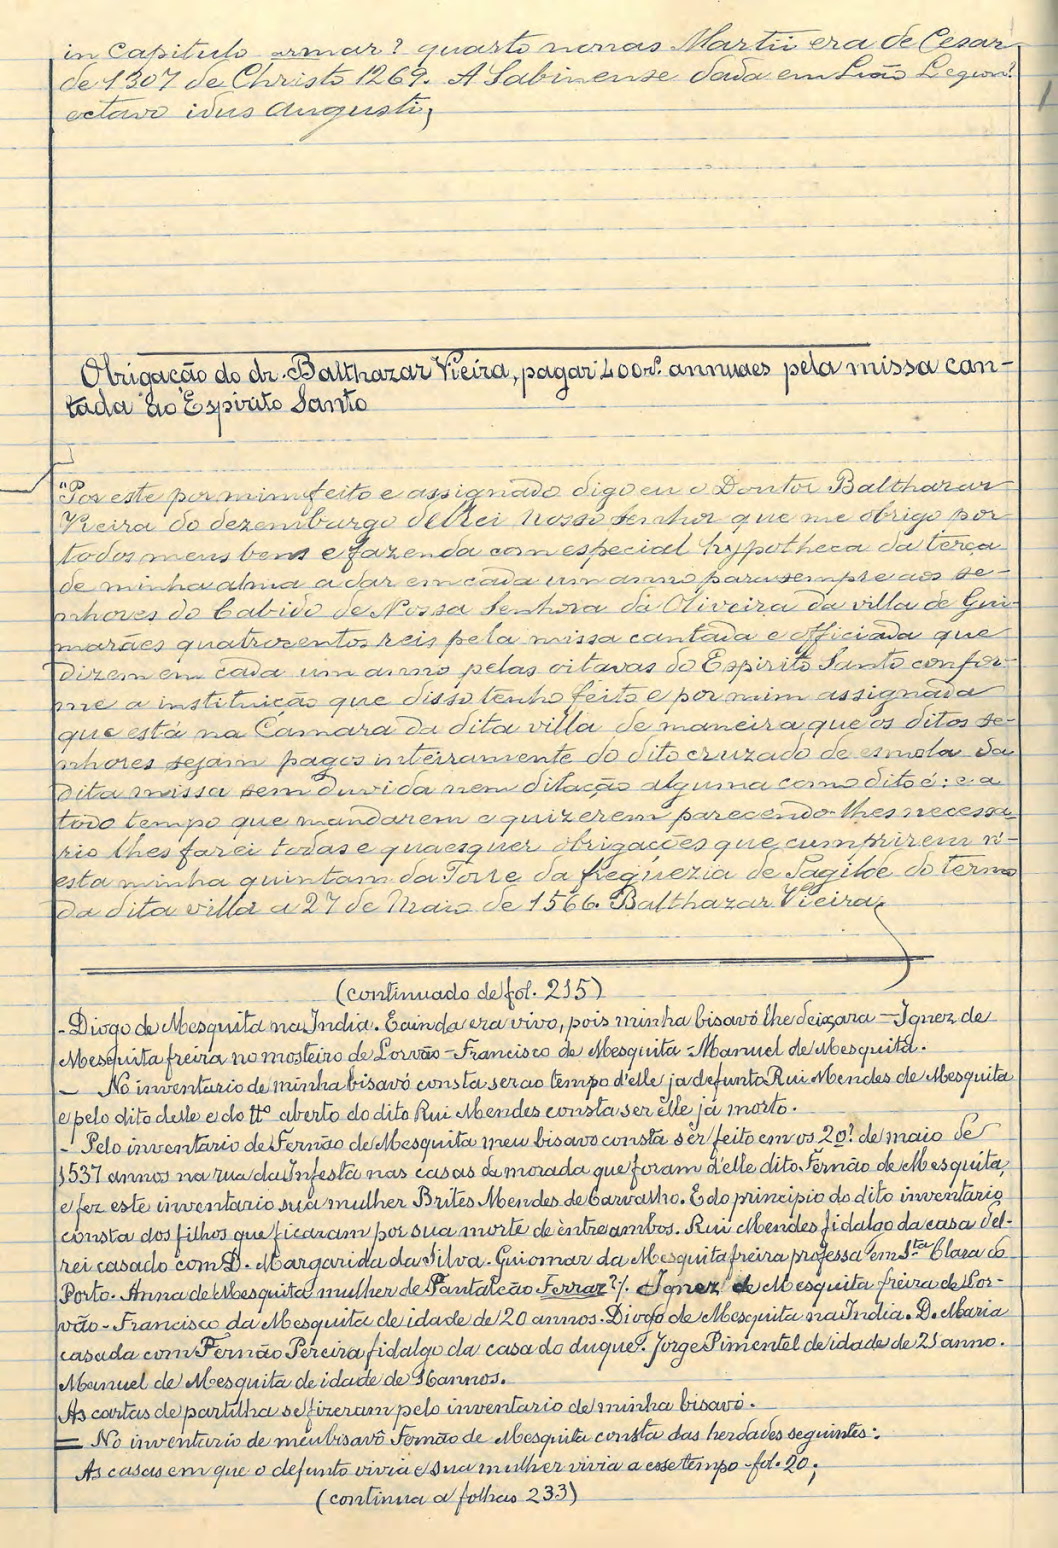 in capitulo armar? quarto nonas Martii era de Cesar
de 1307 de Christo 1269. A Sabinense dada em Leão Legion?
octavo idus augusti,
Obrigação do dr. Balthazar Vieira, pagar 400rs. annuaes pela missa can-
tada ao Espirito Santo
"Por este por mim feito e assignado digo eu o Doutor Balthazar
Vieira do dezembargo delRei Nosso Senhor que me obrigo por
todos meus bens e fazenda com especial hypotheca da terça
de minha alma a dar em cada um anno para sempre aos se-
nhores do Cabido de Nossa Senhora da Oliveira da villa de Gui-
marães quatrocentos reis pela missa cantada e officiada que
dizem em cada um anno pelas oitavas do Espirito Santo confor-
me a instituição que disso tenho feito e por mim assignada
que está na Camara da dita villa de maneira que os ditos se-
nhores sejam pagos inteiramente do dito cruzado de esmola da
dita missa sem duvida nem dilação alguma como dito é: e a
todo tempo que mandarem e quizerem parecendo-lhes necessa-
rio lhes farei todas e quaesquer obrigações que cumprirem n'-
esta minha quintam da Torre da freguezia de Sagilde do termo
da dita villa a 27 de Maio de 1566. Balthazar Vieira,
(continuado de fol. 215)
- Diogo de Mesquita na India. E ainda era vivo, pois minha bisavó lhe deixara - Ignez de
Mesquita freira no mosteiro de Lorvão - Francisco de Mesquita - Manuel de Mesquita.
- No inventario de minha bisavó consta ser ao tempo d'elle ja defunto Rui Mendes de Mesquita
e pelo dito delle e do ttº aberto do dito Rui Mendes consta ser elle já morto.
- Pelo inventario de Fernão de Mesquita meu bisavo consta ser feito em os 20? de maio de
1537 annos na rua da Infesta nas casas de morada que foram d'elle dito Fernão de Mesquita,
e fez este inventario sua mulher Brites Mendes de Carvalho. E do principio do dito inventario
consta dos filhos que ficaram por sua morte de entre ambos. Rui Mendes fidalgo da casa del-
rei casado com D. Margarida da Silva. Guiomar da Mesquita freira professa em Sta Clara do
Porto. Anna de Mesquita mulher de Pantaleão Ferraz?/. Ignez de Mesquita freira de Lor-
vão - Francisco da Mesquita de idade de 20 annos. Diogo de Mesquita na India. D. Maria
casada com Fernão Pereira fidalgo da casa do duque?. Jorge Pimentel de idade de 21 anno.
Manuel de Mesquita de idade de 16 annos.
As cartas de partilha se fizeram pelo inventario de minha bisavó.
= No inventario de meu bisavô Fernão de Mesquita consta das herdades seguintes:
As casas em que o defunto vivia e sua mulher vivia a esse tempo - fol. 20;
(continua a folhas 233)